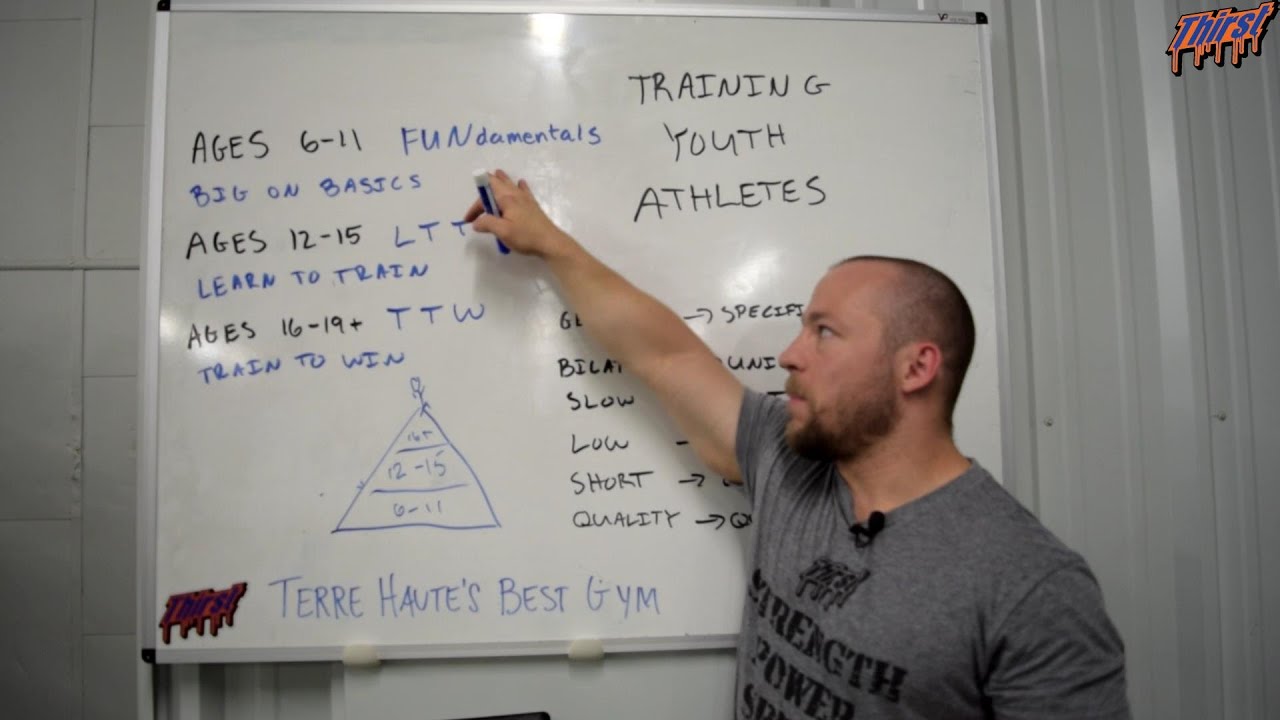 Thirst
TRAINING
YOUTH
ATHLETES
AGES 6-11 FUNdamentals
BIG ON BASICS
AGES 12-15 LTT
LEARN TO TRAIN
AGES 16-19+ TTW
TRAIN TO WIN
16+
12-15
6-11
→ SPECIFI
UNI
SLOW
LOW
SHORT →
QUALITY →
Thirst TERRE HAUTE'S BEST GYM
Thirst
STRENGTH
POWER